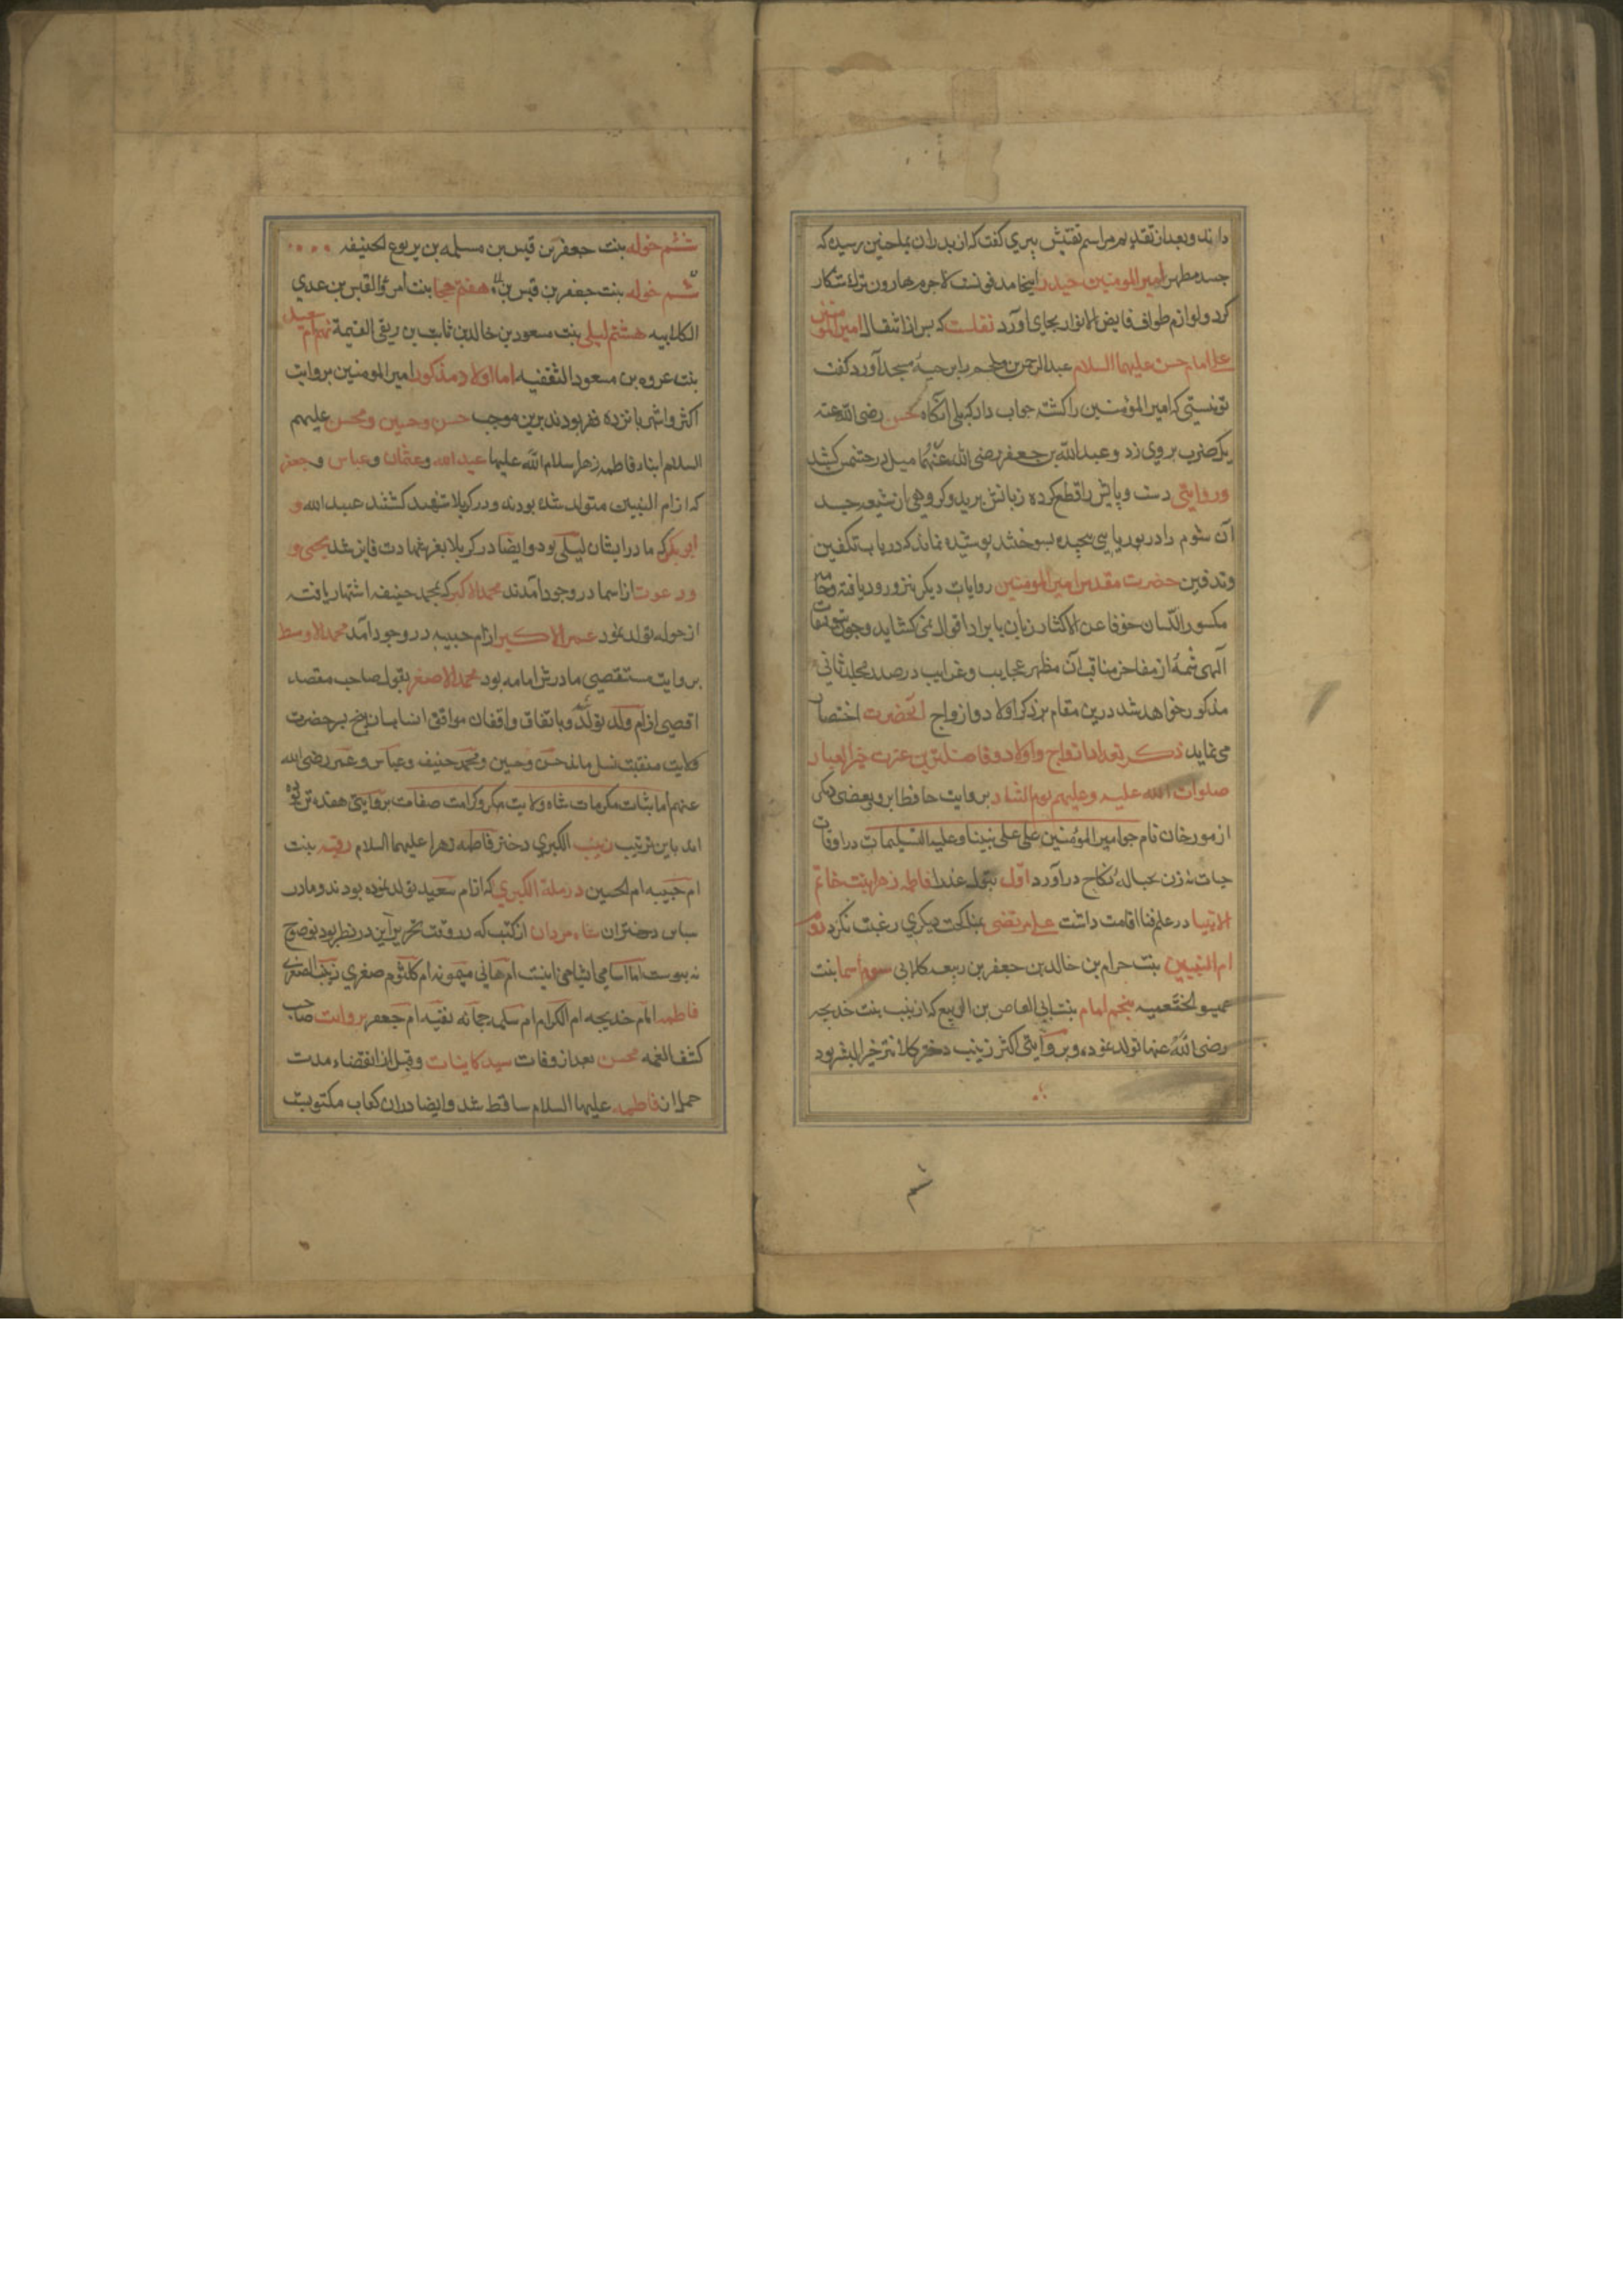 داند و بعد از تقدیم مراسم تفتیش پیری گفت که از پدران بما چنین رسیده که
جسد مطهر امیر المومنین حیدر اینجا مدفونست لاجرم هارون ترک شکار
کرد و لوازم طواف فایض الانوار بجای آورد نقلست که پس از انتقال امیر المومنین
علی امام حسن علیهما السلام عبد الرحمن بن ملجم را بر مسجد آورد گفت
تو نیستی که امیر المؤمنین را کشته جواب داد که بلی انگاه حسن رضی الله عنه
یک ضرب بر وی زد و عبد الله بن جعفر رضی الله عنهما میل در چشمش کشید
و روایتی دست و پایش را قطع کرده زبانش برید و گروهی از شیعه جسد
آن شوم را در بوریا پیچیده بسوختند پوشیده نماند که در باب تکفین
و تدفین حضرت مقدس امیر المومنین روایات دیگر نیز ورود یافته
مکسور اللسان خوفا عن الاکثار زبان بایراد اقوال نمی کشاید و چون
الهی شمهٔ از مفاخر مناقب آن مظهر عجایب و غرایب در صدر مجلد ثانی
مذکور خواهد شد درین مقام بر ذکر اولاد و ازواج آنحضرت اختصار
می نماید ذکر تعداد ازواج و اولاد خیر العباد
صلوات الله علیه و علیهم یوم التناد بروایت حافظ ابرو و بعضی دیگر
از مورخان امیر المؤمنین علی علی نبینا و علیه التسلیمات در اوقات
حیات نه زن بحباله نکاح درآورد اول بتول عذرا فاطمه زهرا بنت خاتم
الانبیا در علم فنا اقامت داشت علی مرتضی بمناکحت دیگری رغبت نکرد دوم
ام البنین بنت حرام بن خالد بن جعفر بن ربیعه کلابی سوم اسما بنت
عمیس الخثعمیه پنجم امامه بنت ابی العاص بن الربیع که از زینب بنت خدیجه
رضی الله عنها تولد نموده و بروایتی اکثر زینب دختر کلانتر خیر البشر بود
ششم
ششم خوله بنت جعفر بن قیس بن مسلمه بن یربوع الحنیفه
ششم خوله بنت جعفر بن قیس بن هفتم محیا بنت امرؤ القیس بن عدی
الکلابیه هشتم لیلی بنت مسعود بن خالد بن ثابت بن ربعی نهم ام سعید
بنت عروه بن مسعود الثقفیه اما اولاد مذکور امیر المومنین بروایت
اکثر و اشهر پانزده نفر بودند برین موجب حسن و حسین و محسن علیهم
السلام ابناء فاطمه زهرا سلام الله علیها عبد الله و عثمان و عباس و جعفر
که از ام البنین متولد شده بودند و در کربلا شهید گشتند عبید الله و
ابی بکر که مادر ایشان لیلی بود و ایضا در کربلا بعز شهادت فایز شد یحیی و
و عون از اسما در وجود آمدند محمد الاکبر که بمحمد حنیفه اشتهار یافت
از خوله تولد نمود عمر الاکبر از ام حبیبه در وجود آمد محمد الاوسط
بروایت مستقصی مادرش امامه بود محمد الاصغر بقول صاحب مقصد
اقصی از ام ولد تولد و باتفاق واقفان مواقف از حضرت
ولایت منقبت نسل مانده حسن و حسین و محمد حنیف و عباس و عمر رضی الله
عنهم اما بنات مکرمات شاه ولایت صفات بروایتی هفده تن بوده
اند باین ترتیب زینب الکبری دختر فاطمه زهرا علیهما السلام رقیه بنت
ام حبیبه ام الحسین و رملة الکبری که از ام سعید تولد نموده بودند و مادر
سایر دختران شاه مردان از کتب که در وقت تحریر این در نظر بود بوضوح
نه پیوست اما اسامی ایشان اینست ام هانی میمونه ام کلثوم صغری زینب الصغری
فاطمه امام خدیجه ام الکرام ام سلمه جمانه نفیسه ام جعفر بروایت صاحب
کشف الغمه محسن بعد از وفات سید کاینات و قبل از انقضاء مدت
حمل از فاطمه علیها السلام ساقط شد و ایضا در ان کتاب مکتوبست